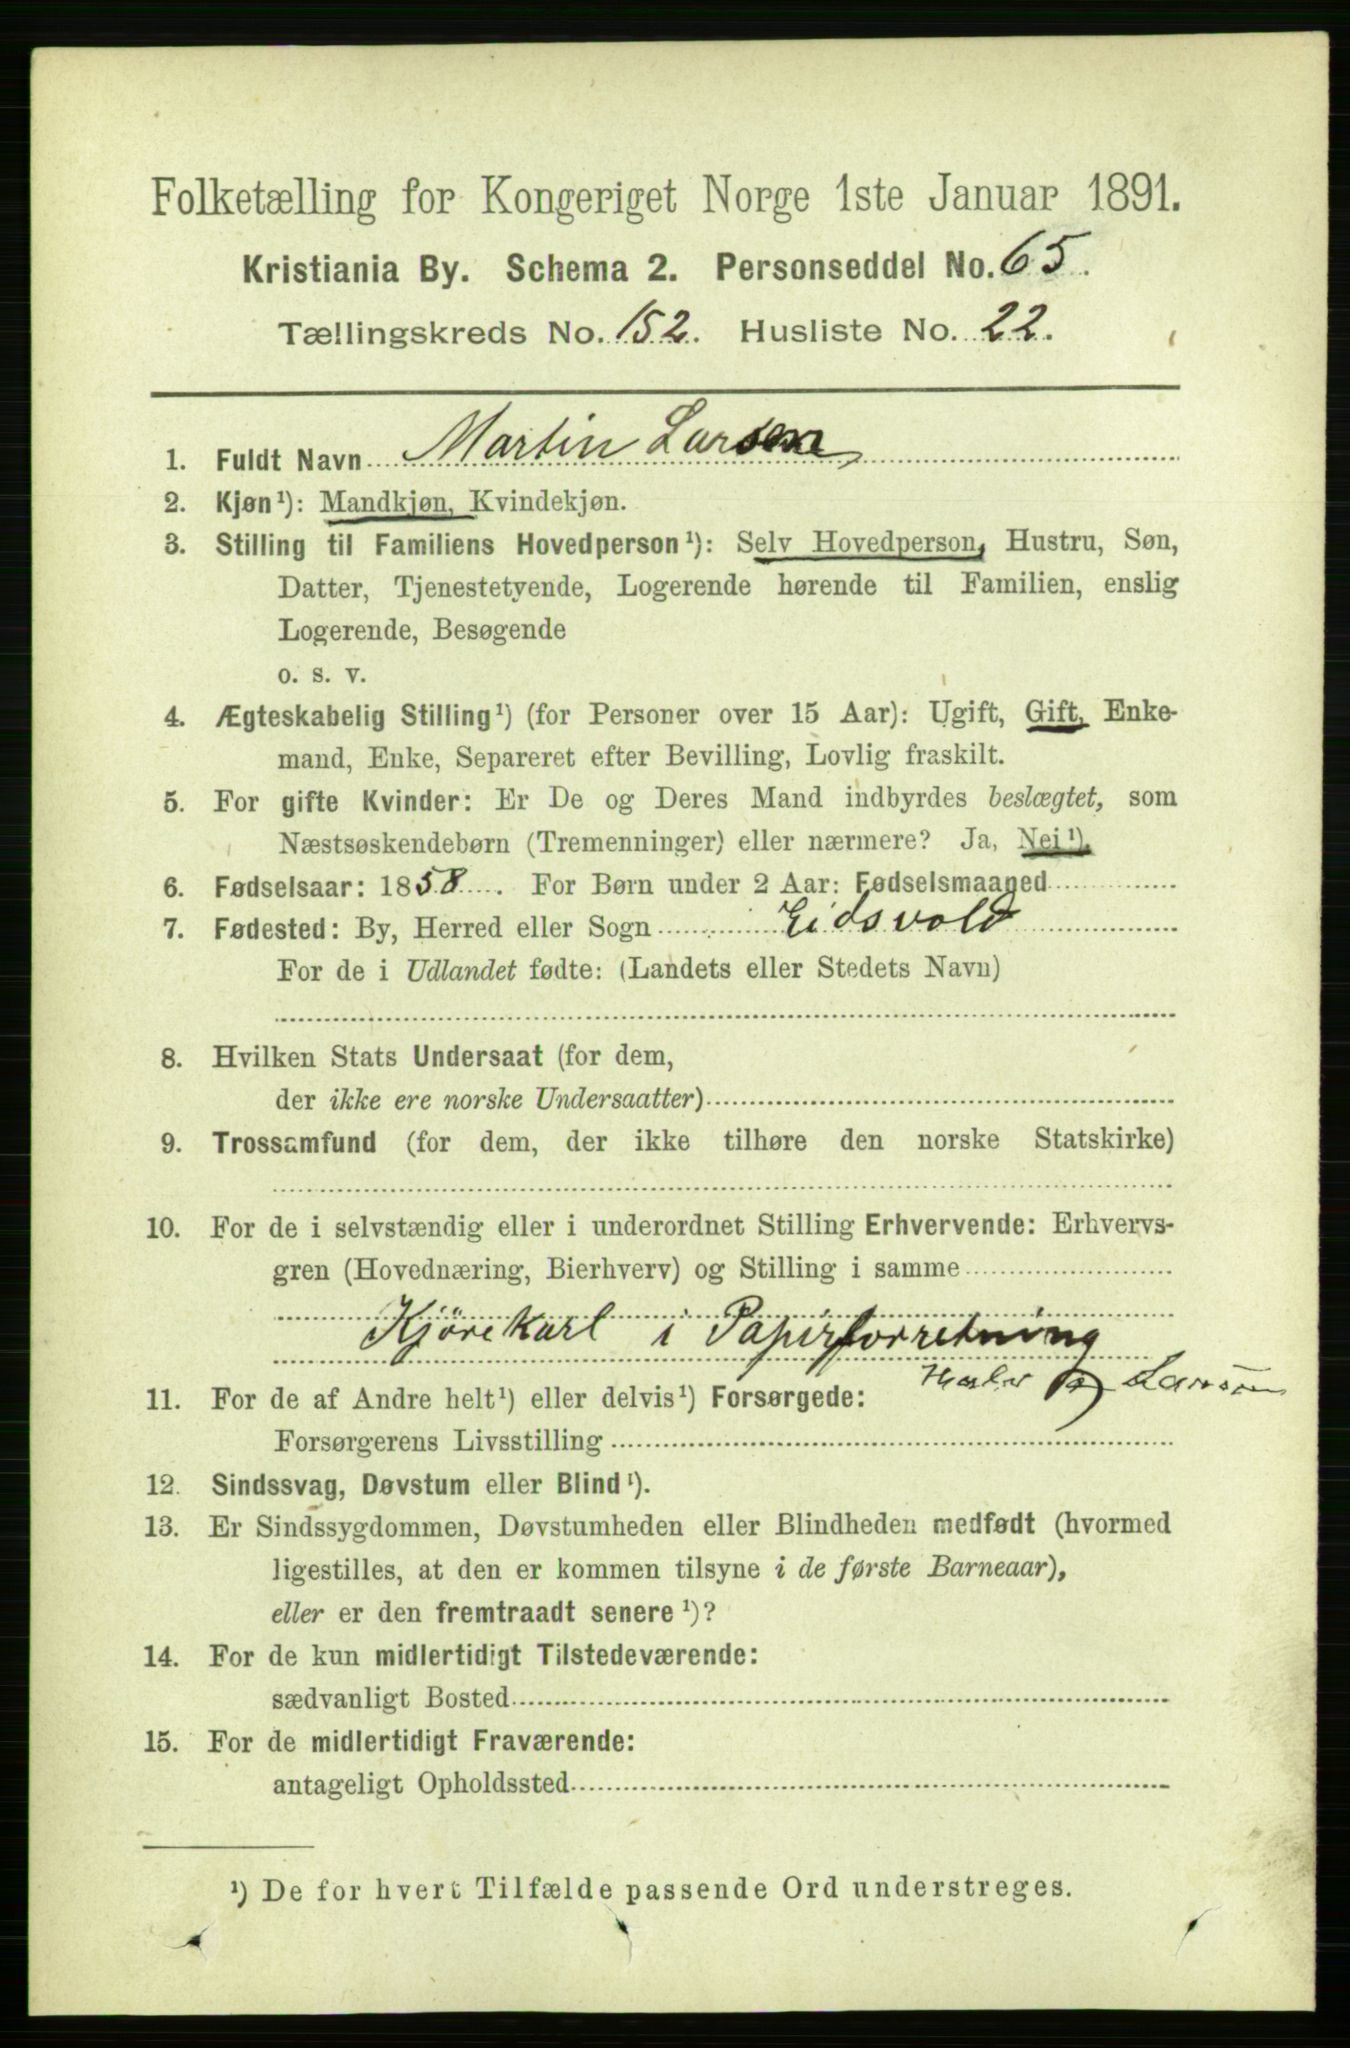 Folketælling for Kongeriget Norge 1ste Januar 1891.
Kristiania By. Schema 2. Personseddel No. 65.
Tællingskreds No. 152. Husliste No. 22.
1. Fuldt Navn Martin Larsen
2. Kjøn¹): Mandkjøn, Kvindekjøn.
3. Stilling til Familiens Hovedperson¹): Selv Hovedperson, Hustru, Søn,
Datter, Tjenestetyende, Logerende hørende til Familien, enslig
Logerende, Besøgende
o. s. v.
4. Ægteskabelig Stilling¹) (for Personer over 15 Aar): Ugift, Gift, Enke-
mand, Enke, Separeret efter Bevilling, Lovlig fraskilt.
5. For gifte Kvinder: Er De og Deres Mand indbyrdes beslægtet, som
Næstsøskendebørn (Tremenninger) eller nærmere? Ja, Nei¹).
6. Fødselsaar: 1858. For Børn under 2 Aar: Fødselsmaaned
7. Fødested: By, Herred eller Sogn Eidsvold
For de i Udlandet fødte: (Landets eller Stedets Navn)
8. Hvilken Stats Undersaat (for dem,
der ikke ere norske Undersaatter)
9. Trossamfund (for dem, der ikke tilhøre den norske Statskirke)
10. For de i selvstændig eller i underordnet Stilling Erhvervende: Erhvervs-
gren (Hovednæring, Bierhverv) og Stilling i samme
Kjörekarl i Papirforretning
Larsen
11. For de af Andre helt¹) eller delvis¹) Forsørgede:
Forsørgerens Livsstilling
12. Sindssvag, Døvstum eller Blind¹).
13. Er Sindssygdommen, Døvstumheden eller Blindheden medfødt (hvormed
ligestilles, at den er kommen tilsyne i de første Barneaar),
eller er den fremtraadt senere¹)?
14. For de kun midlertidigt Tilstedeværende:
sædvanligt Bosted
15. For de midlertidigt Fraværende:
antageligt Opholdssted
¹) De for hvert Tilfælde passende Ord understreges.